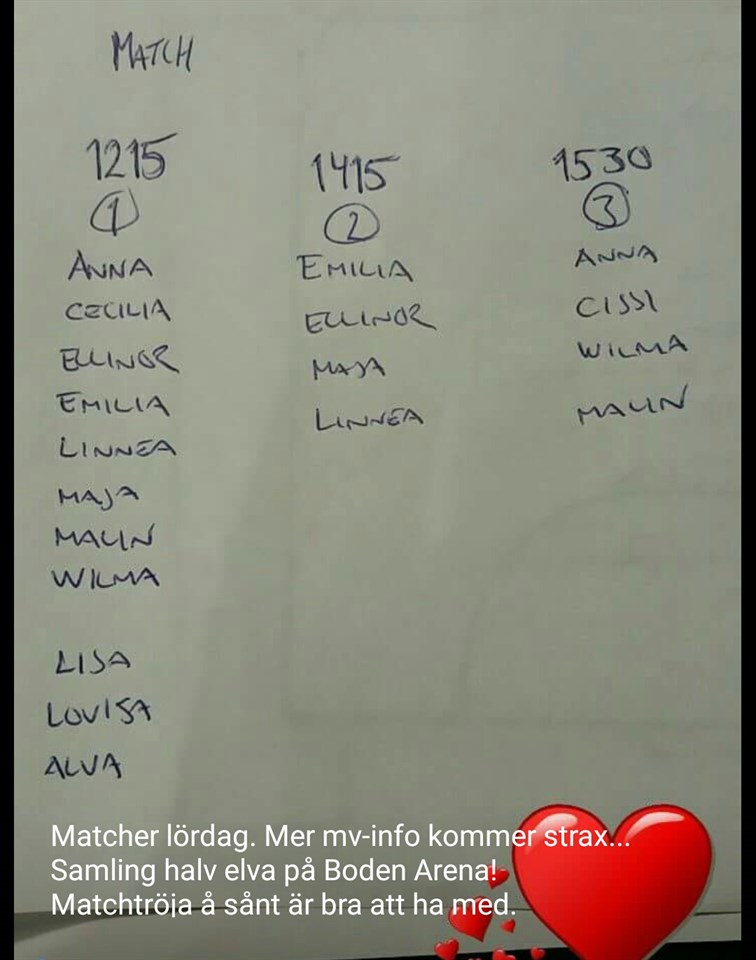 MATCH
1215
1
ANNA
CECILIA
ELLINOR
EMILIA
LINNEA
MAJA
MALIN
WILMA
LISA
LOVISA
ALVA
1415
2
EMILIA
ELLINOR
MAJA
LINNEA
1530
3
ANNA
CISSI
WILMA
MALIN
Matcher lördag. Mer mv-info kommer strax...
Samling halv elva på Boden Arena!
Matchtröja å sånt är bra att ha med.